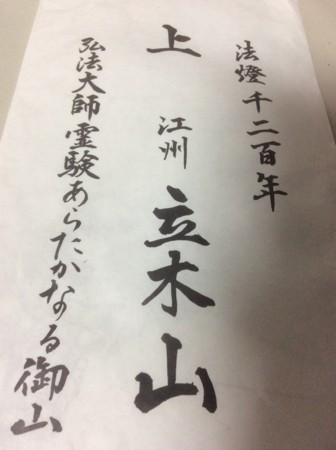 法燈千二百年
上 江州 立木山
弘法大師霊験あらたかなる御山